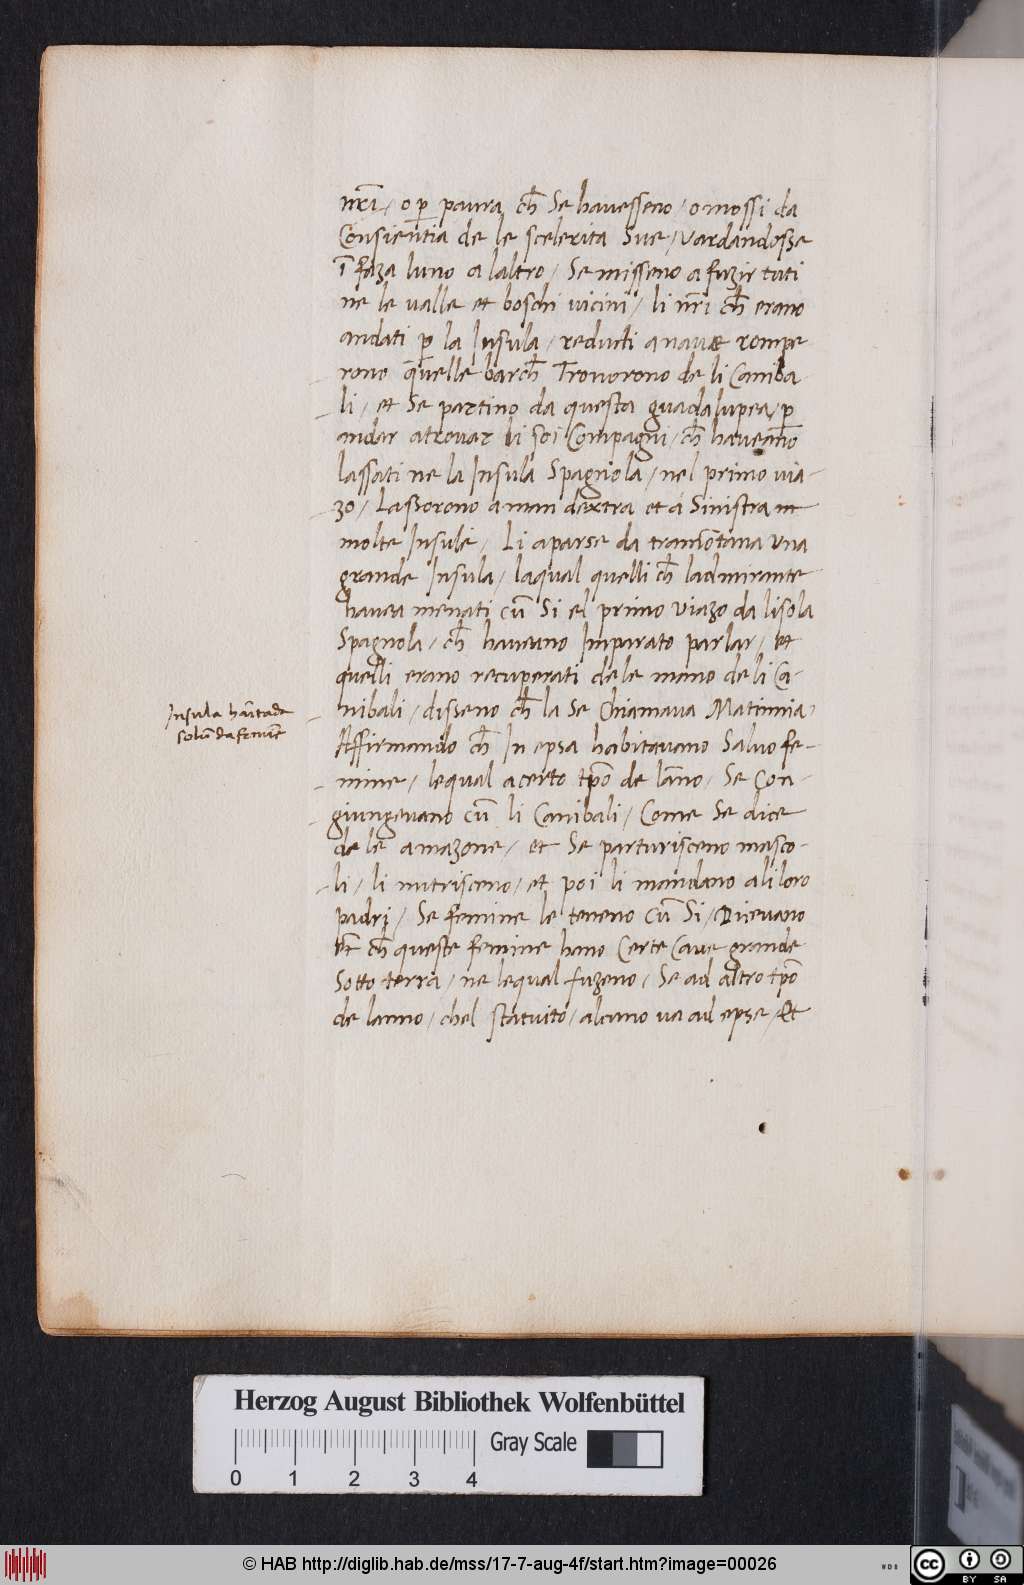 nr̃i / o p̱ paura ch̃ Se havesseno / o mossi da
Consientia de le scelerita Sue / vardandosse
ĩ faza luno a laltro / Se misseno a fuzir tuti
ne le valle et boschi vicini / li nr̃i ch̃ erano
andati p̱ la Insula / reducti a nave rompe
rono quelle barch̃ Trovorono de li Caniba-
li / et Se partino da questa guadalupea / p̱
andar a trovar li soi Compagni / ch̃ haveano
lassati ne la Insula Spagnola / nel primo via-
zo / Lassorono a man dextra et á Sinistra
molte Insule / Li aparse da tramõtana Una
grande Insula / laqual quelli ch̃ ladmirante
havea menati cũ Si el primo Viazo da lisola
Spagnola / ch̃ haveano Imparato parlar / et
quelli erano recuperati de le mano de li Ca-
nibali / disseno ch̃ la Se Chiamava Matinnia /
Affirmando ch̃ In epsa habitavano Salvo fe-
mine / lequal a certo tp̃o de lãno / Se Con-
giungevano cũ li Canibali / Come Se dice
de le amazone / et Se parturisceno masco-
li / li nutrisceno / et poi li mandano a li loro
padri / Se femine le teneno cũ Si / Dicevano
et̃ ch̃ queste femine hano Certe Cave grande
Sotto terra / ne lequal fuzeno / Se ad altro tp̃o
de lanno / chel statuito / alcuno va ad epse / Et
Insula habitada
solũ da femine
Herzog August Bibliothek Wolfenbüttel
Gray Scale
0 1 2 3 4
© HAB http://diglib.hab.de/mss/17-7-aug-4f/start.htm?image=00026
WDB
cc BY SA